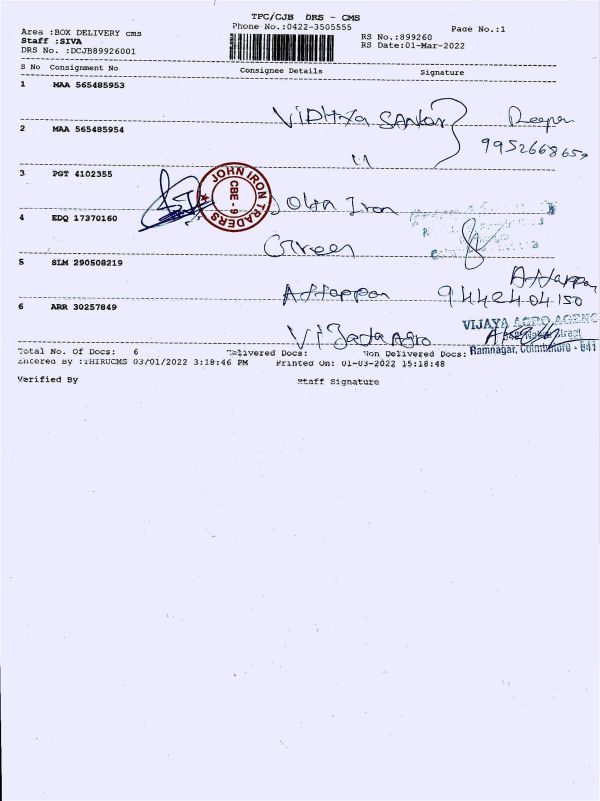 TPC/CJB DRS - CMS
Phone No.:0422-3505555
Page No.:1
Area :BOX DELIVERY cms
Staff :SIVA
DRS No. :DCJB89926001
RS No.:899260
RS Date:01-Mar-2022
S No Consignment No Consignee Details Signature
1 MAA 565485953
VIDHYA SANKAR Deepan
2 MAA 565485954
9952668659
11
3 PGT 4102355
JOHN IRON TRADERS
CBE - 9
John Iron
4 EDQ 17370160
Green
5 SLM 290508219
Athappan Athappan
9442404150
6 ARR 30257849
Vijaya Agro
VIJAYA AGRO AGENC
Street
Ramnagar, Coimbatore - 641
Total No. Of Docs: 6 Delivered Docs: Non Delivered Docs:
Entered By :THIRUCMS 03/01/2022 3:18:46 PM Printed On: 01-03-2022 15:18:48
Verified By Staff Signature